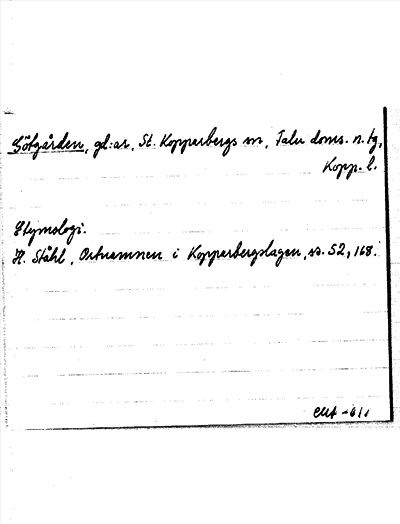 Götgården, gd:ar, St. Kopparbergs sn, Falu doms. n. tg,
Kopp. l.
Etymologi.
H. Ståhl, Ortnamnen i Kopparbergslagen, s. 52, 168.